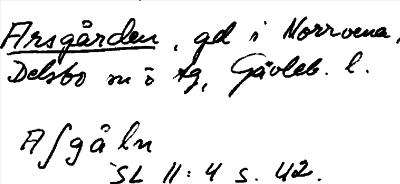 Arsgården, gd i Norrvena,
Delsbo sn o tg, Gävleb. l.
Asgåln
SL 11:4 s. 42.